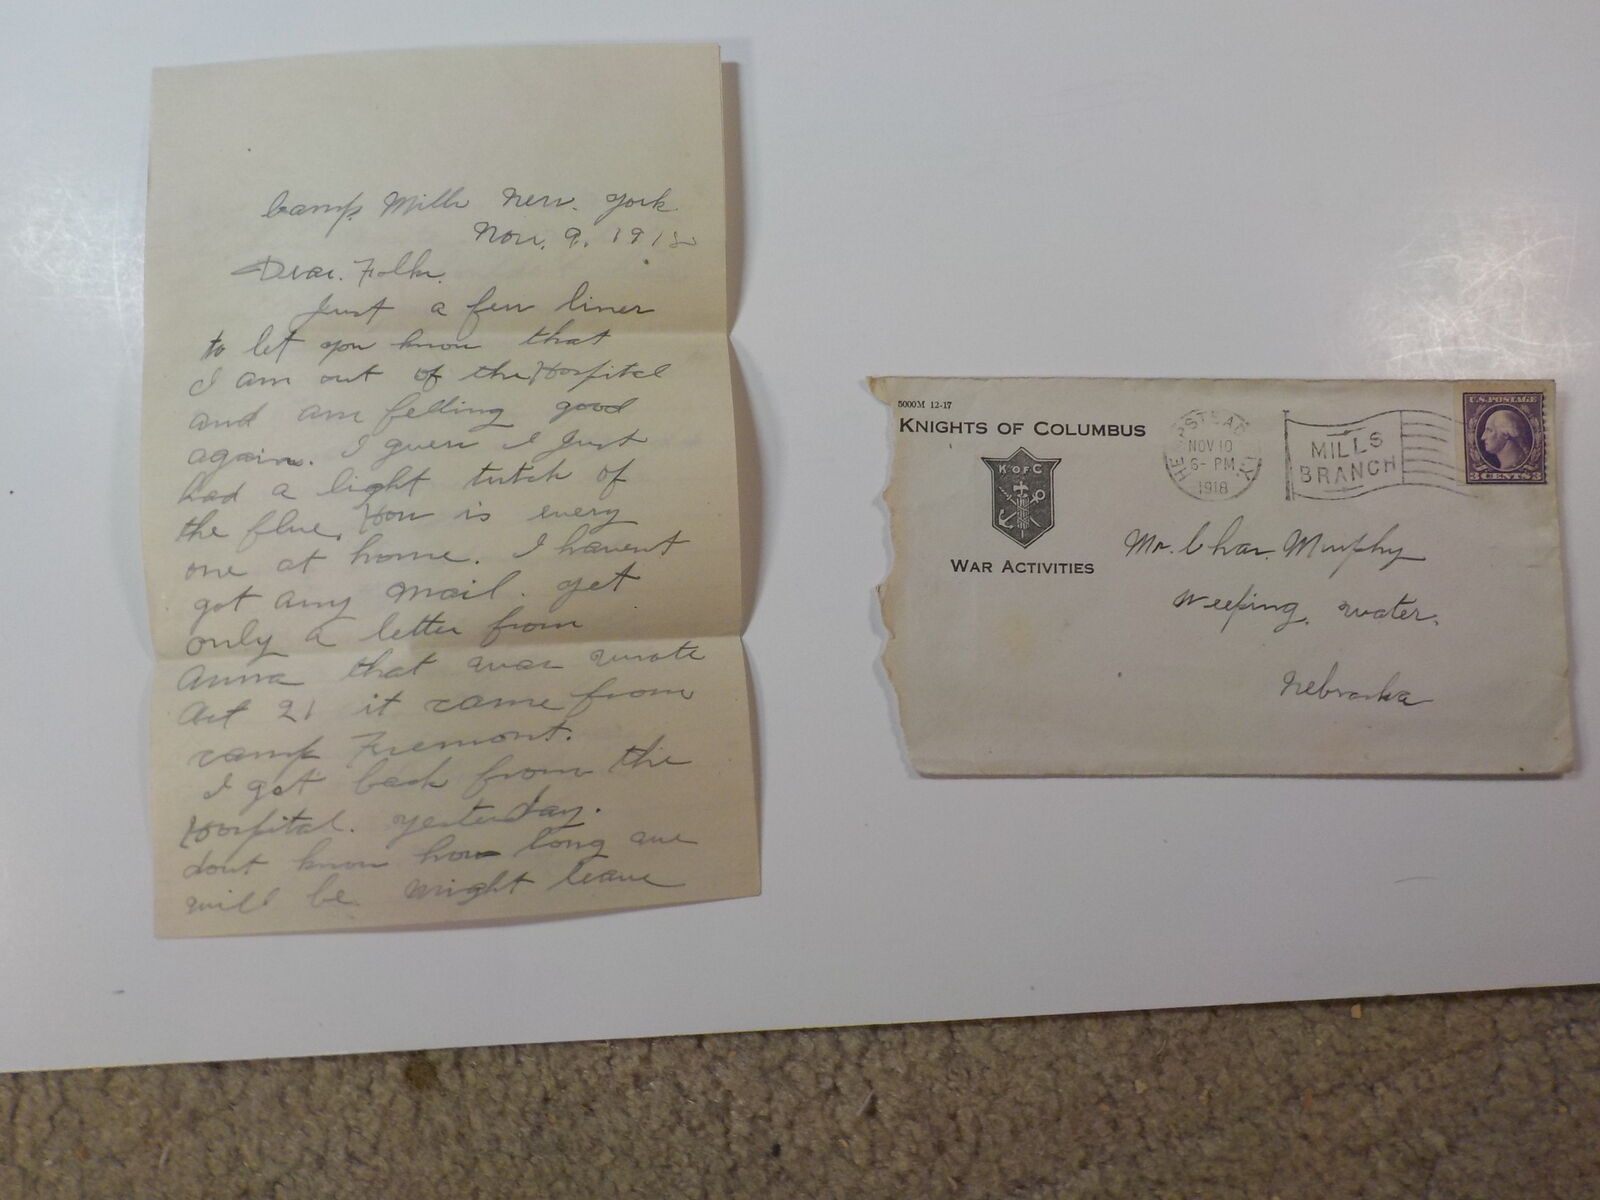 Camp Mills New. York
Nov. 9. 1918
Dear. Folks.
Just a few lines
to let you know that
I am out of the Hospital
and am felling good
again. I guess I Just
had a light tutch of
the flue. How is every
one at home. I havent
got any mail. yet
only a letter from
Anna that was wrote
Oct 21 it came from
camp Fremont.
I got back from the
Hospital. yesterday.
dont know how long we
will be. might leave
5000M 12-17
KNIGHTS OF COLUMBUS
K OF C
WAR ACTIVITIES
HEMPSTEAD N.Y.
NOV 10
6- PM
1918
MILLS
BRANCH
U.S. POSTAGE
3 CENTS 3
Mr. Chas. Murphy
Weeping. water.
Nebraska